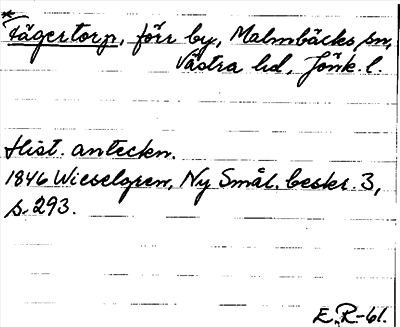 *Fägertorp, förr by, Malmbäcks sn,
Västra hd, Jönk. l.
Hist. anteckn.
1846 Wieselgren, Ny Smål. beskr. 3,
s. 293.
E.R-61.